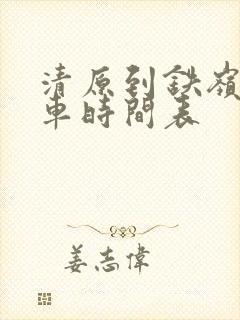 清原到鉄嶺
車時間表
姜志偉